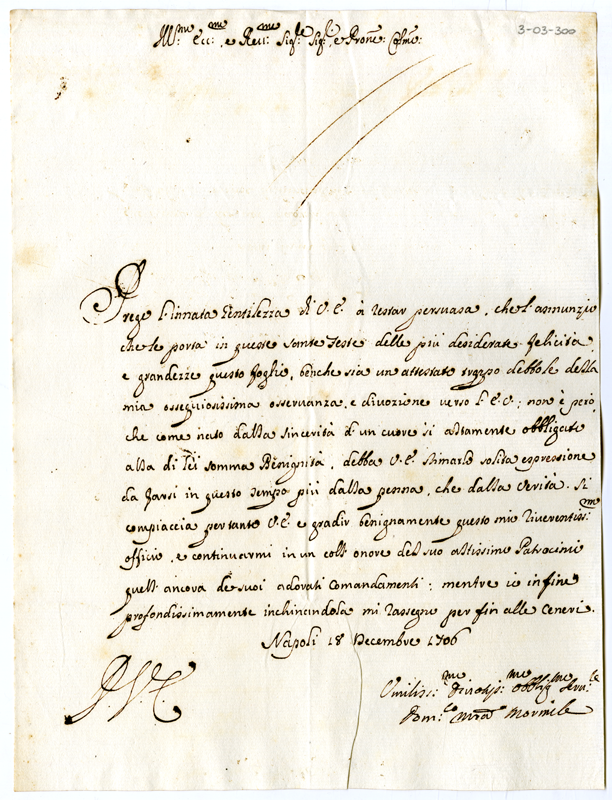 Ill:mo Ecc:mo e Rev:mo Sig:re Sig:r e Prone: Colmo:
3-03-300
Prego l'innata Gentilezza di V. E. à restar persuasa, che l'annunzio
che le porta in queste sante feste delle più desiderate felicità,
e grandezze questo foglio, benche sia un attestato troppo debbole della
mia ossequiosissima osservanza, e divozione verso l'E. V.; non è però,
che come nato dalla sincerità d'un cuore sì altamente obbligato
alla di Lei somma Benignità, debba V. E. stimarlo solita espressione
da farsi in questo tempo più dalla penna, che dalla verità. Si
compiaccia pertanto V. E. e gradir benignamente questo mio riverentiss:mo
officio, e continuarmi in un coll' onore del suo altissimo Patrocinio
quell' ancora de suoi adorati Comandamenti; mentre io in fine
profondissimamente inchinandola mi rassegno per fin alle Ceneri.
Napoli 18 Decembre 1706
D. V. E.
Umiliss:mo Divotiss:mo Obblig:mo Serv:le
Dom:co Mra Mormile